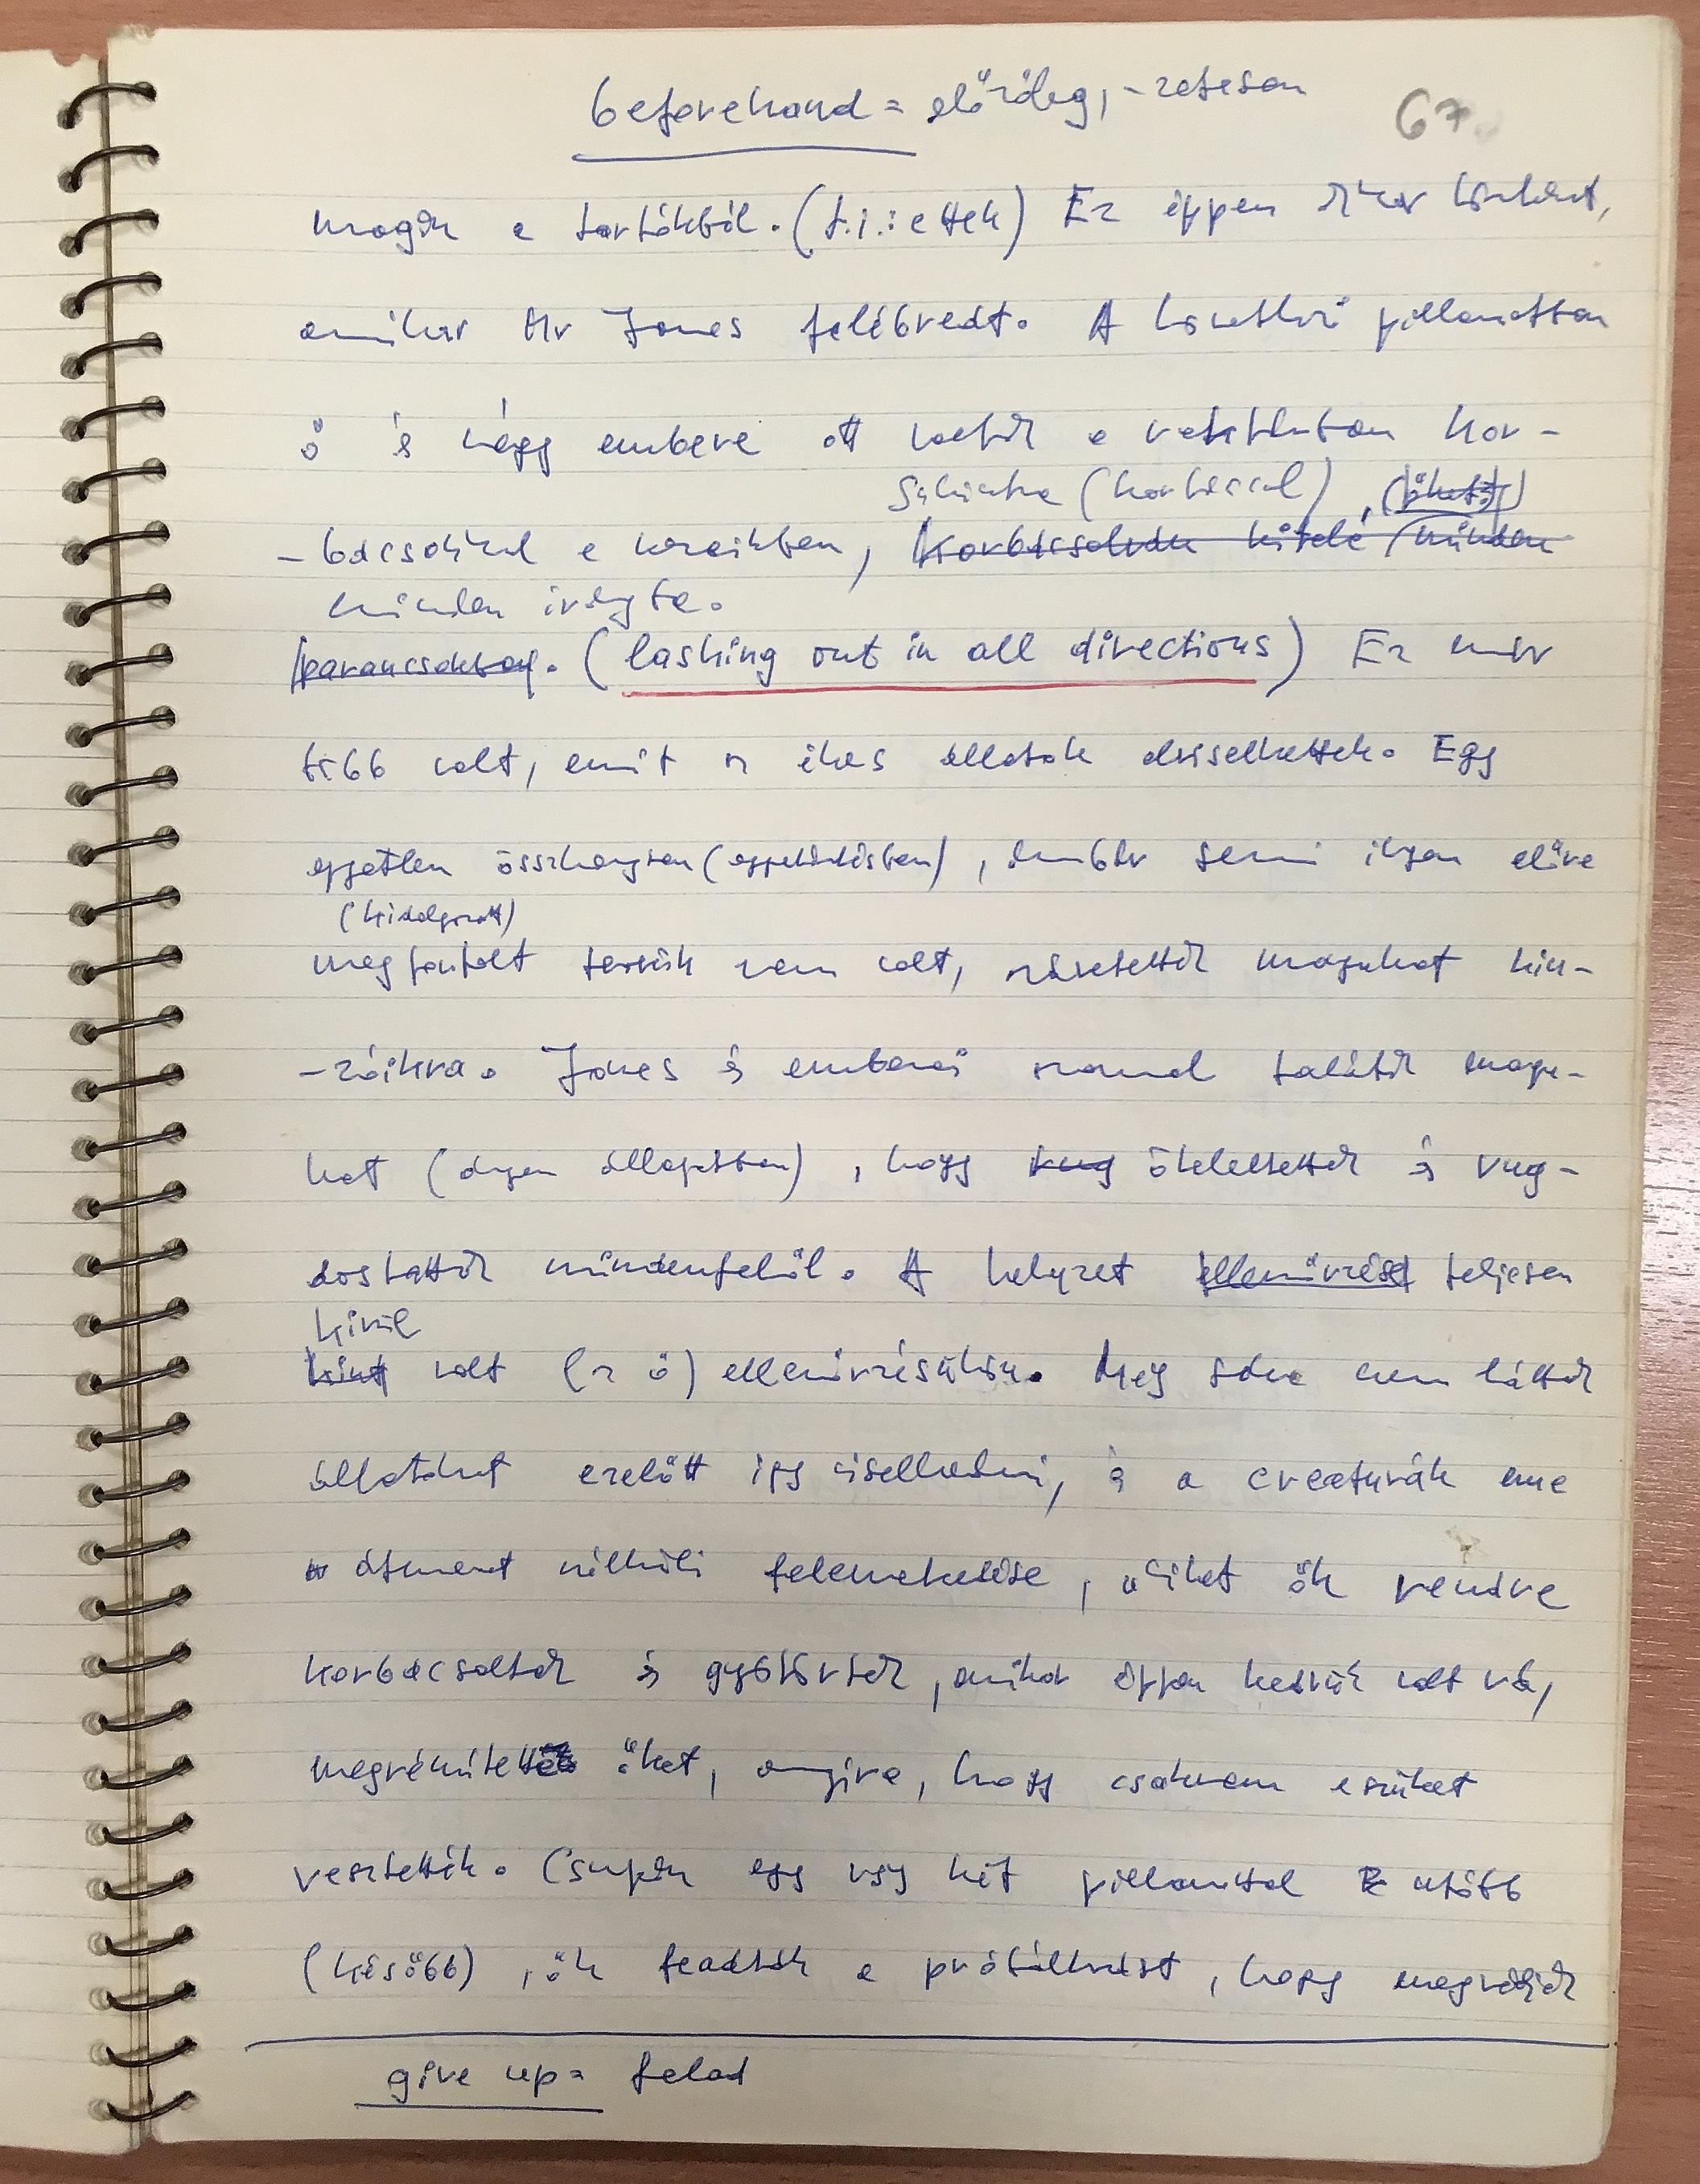 beforehand = előzőleg, -zetesen
67.
maguk a tartókból. (t.i.: ettek) Ez éppen akkor történt,
amikor Mr Jones felébredt. A következő pillanatban
ő és négy embere ott voltak a raktárban kor-
sújtva (korbáccsal), (őket)
-bácsokkal a kezeikben, korbácsolván kifelé (minden
minden irányba.
parancsokban). (lashing out in all directions) Ez már
több volt, amit az éhes állatok elviselhettek. Egy
egyetlen összhangban (egyetértésben), ámbár semmi ilyen előre
(kidolgozott)
megfontolt tervük nem volt, rávetették magukat kín-
-zóikra. Jones és emberei azonnal találták magu-
kat (olyan állapotban), hogy rug ökleltették és rug-
dostatták mindenfelől. A helyzet ellenőrzést teljesen
kívül
kint volt (az ő) ellenőrzésükön. Még soha nem láttak
állatokat ezelőtt így viselkedni, és a creaturák eme
átmenet nélküli felemelkedése, akiket ők rendre
korbácsoltak és gyötörtek, amikor éppen kedvük volt rá,
megrémítette őket, annyira, hogy csaknem eszüket
vesztették. Csupán egy vagy két pillanattal utóbb
(később), ők feladták a próbálkozást, hogy megvédjék
give up = felad